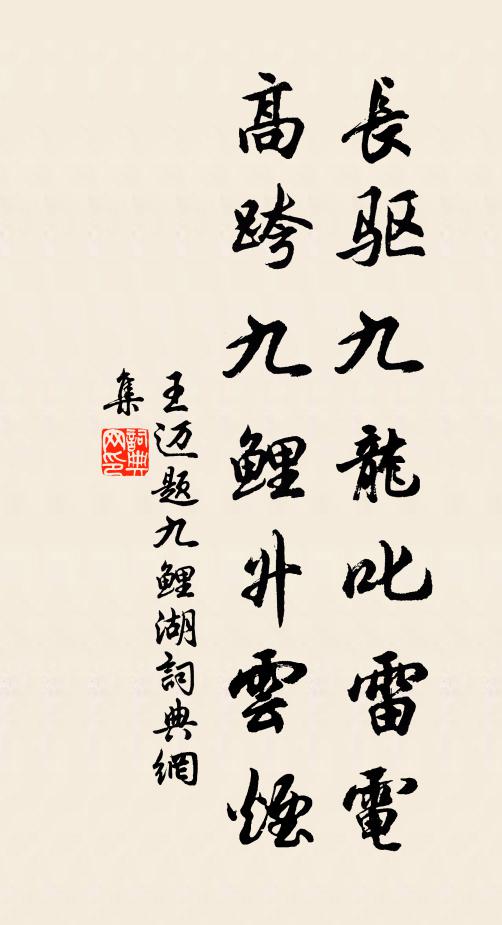 長驱九龍叱雷電
高跨九鲤升雲煙
王迈题九鲤湖詞典網
集
詞典网印